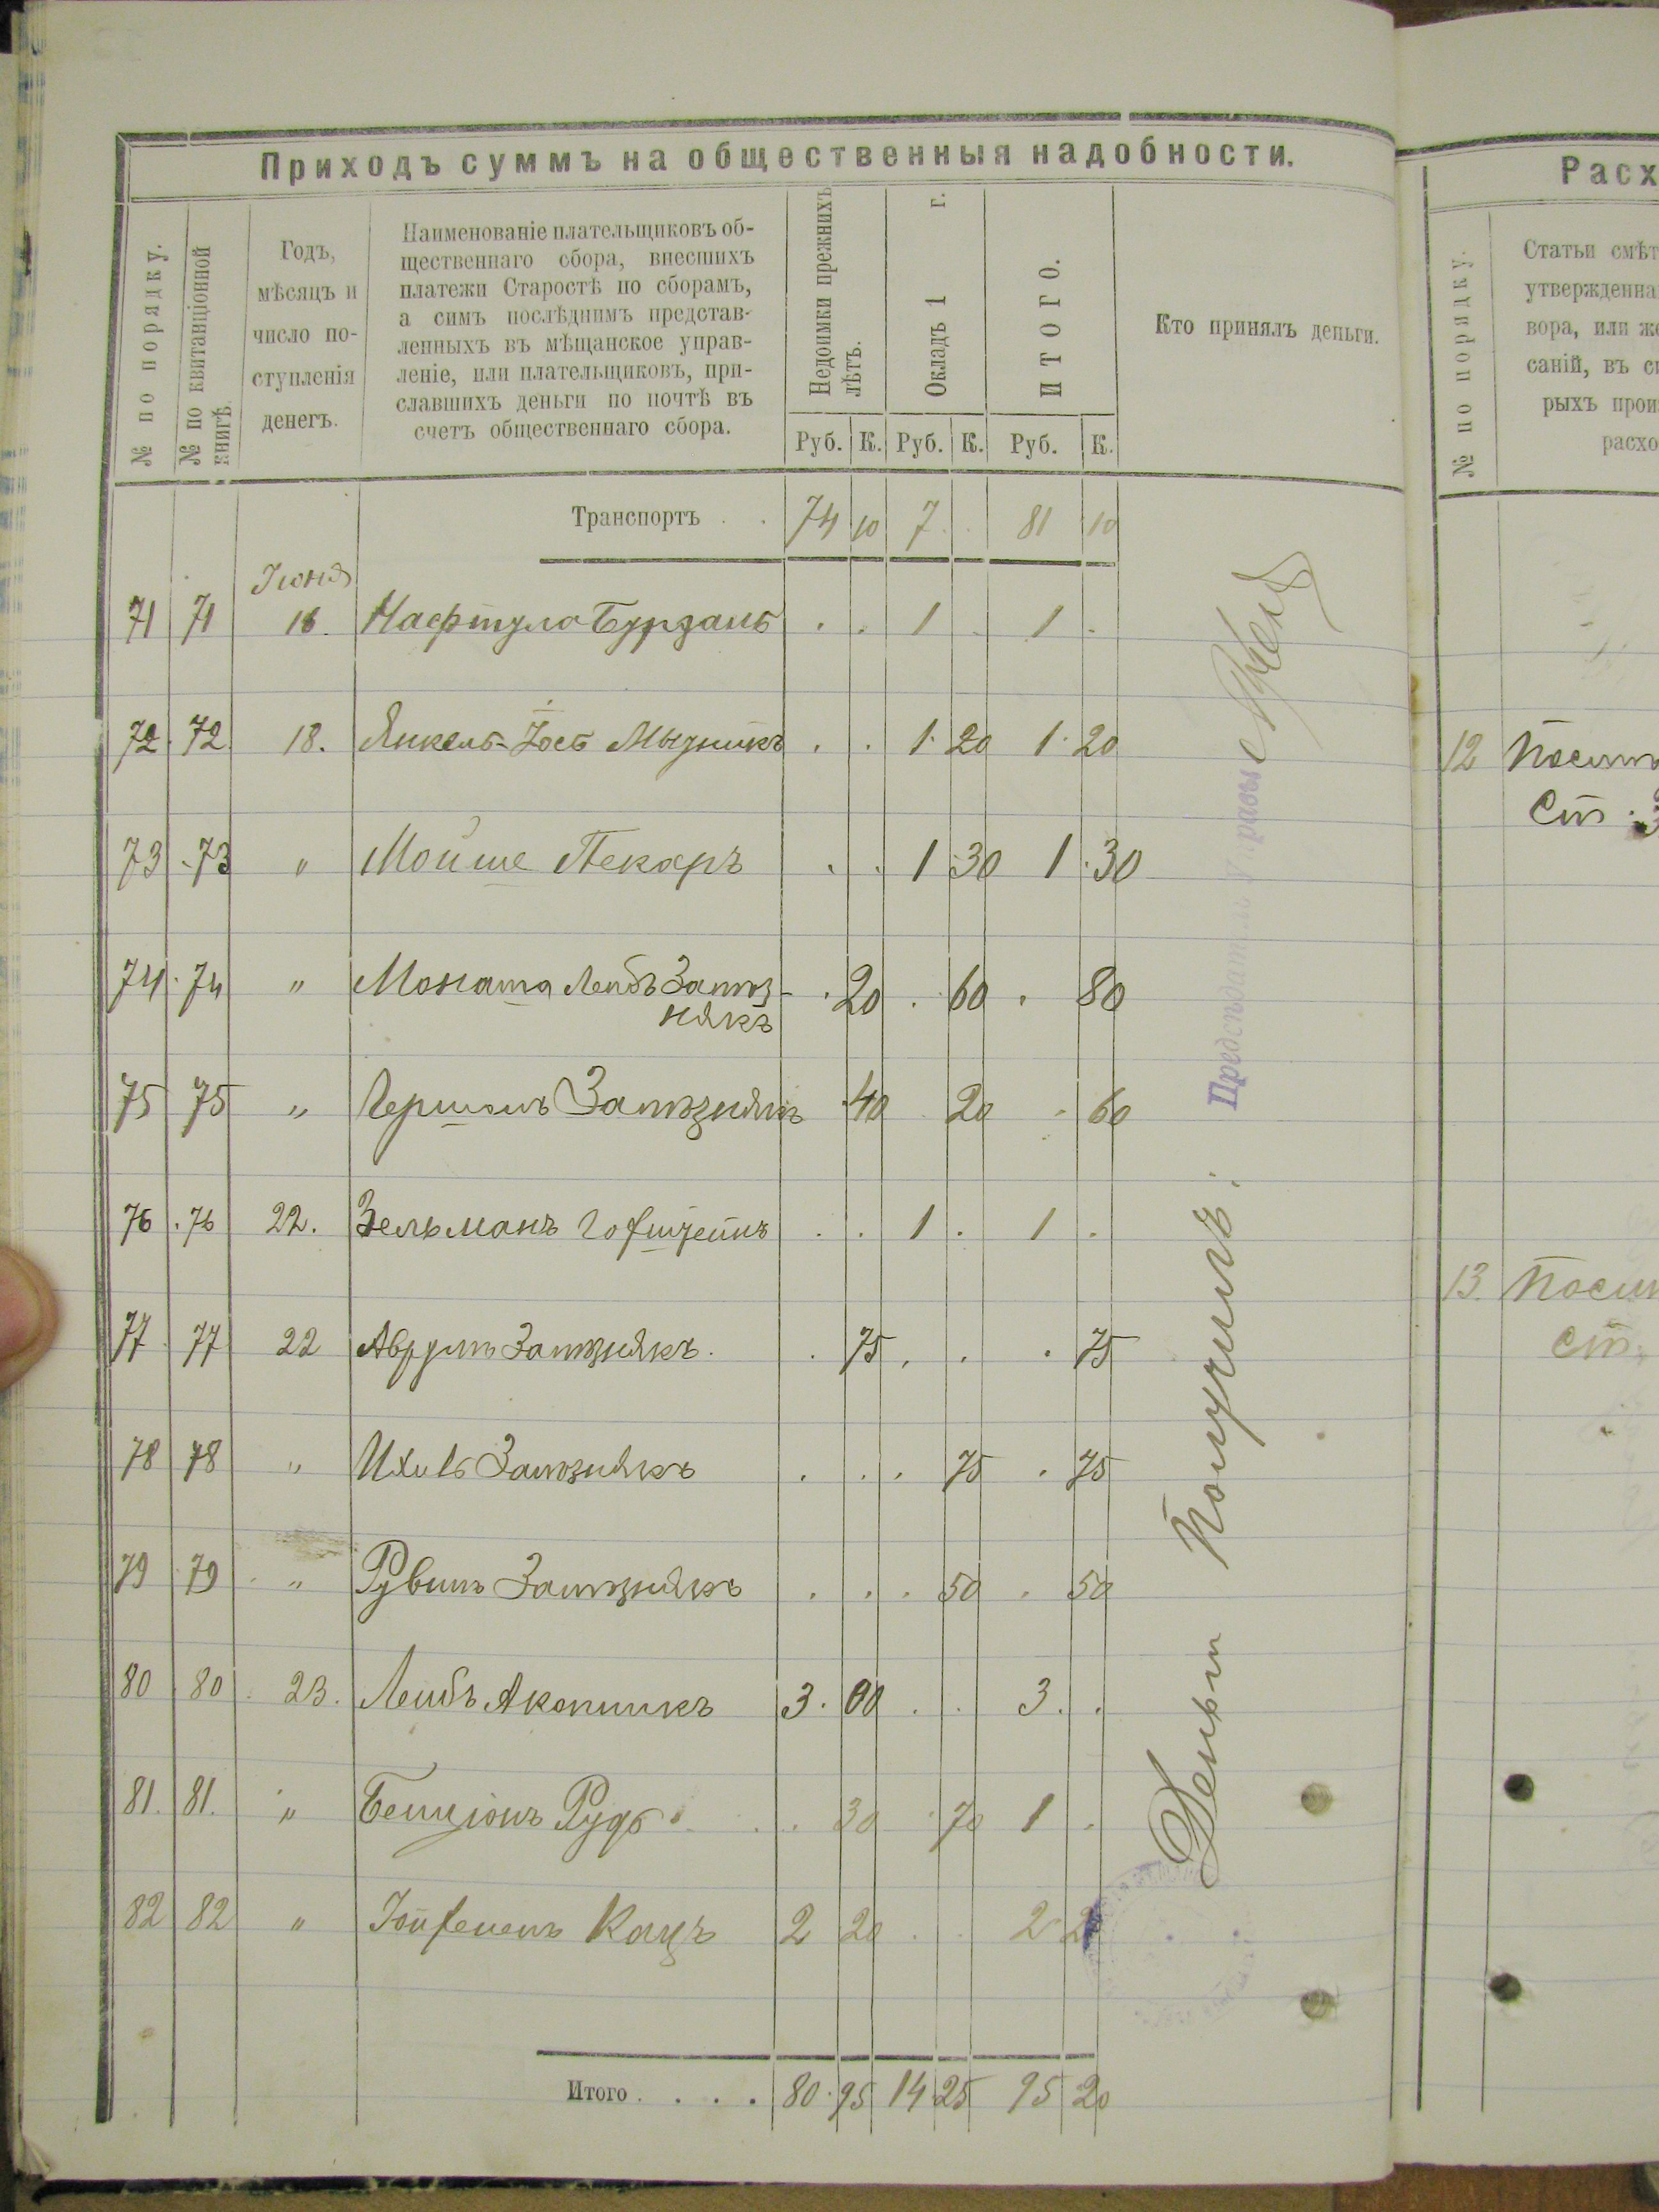 Приходъ суммъ на общественныя надобности.
№ по порядку.
№ по квитанціонной
книгѣ.
Годъ,
мѣсяцъ и
число по-
ступленія
денегъ.
Наименованіе плательщиковъ об-
щественнаго сбора, внесшихъ
платежи Старостѣ по сборамъ,
а симъ послѣднимъ представ-
ленныхъ въ мѣщанское управ-
леніе, или плательщиковъ, при-
славшихъ деньги по почтѣ въ
счетъ общественнаго сбора.
Недоимки прежнихъ
лѣтъ.
Окладъ 1 г.
ИТОГО.
Кто принялъ деньги.
Руб. К. Руб. К. Руб. К.
Транспортъ . . 74 10 7 . 81 10
Іюня
71 71 16. Нафтула Бурдань . . 1 . 1 .
72. 72 18. Янкель-Іось Мызникъ . . 1. 20 1. 20
73 73 „ Мойше Пекаръ . . 1 30 1 30
74 74 „ Моната Лейбъ Затоз-
някъ . 20 . 60 . 80
75 75 „ Гершонъ Затознякъ 40 20 . 60
76 76 22. Зельманъ Гофштейнъ . . 1 . 1 .
77 77 22 Аврумъ Затознякъ. . 75 . . . 75
78 78 „ Ихиль Затознякъ . . . 75 . 75
79 79 „ Рувинъ Затознякъ . . . 50 . 50
80 80 23. Лейбъ Акопникъ 3. 00 . . 3. .
81. 81. „ Бенціонъ Рудь . 30 . 70 1 .
82 82 „ Кацъ 2 20 . . 2 20
Итого . . . . 80. 95 14 25 95 20
Деньги получилъ:
Предсѣдатель Управы
Расх
№ по порядку.
Статьи смѣт
утвержденна
вора, или же
саній, въ си
рыхъ прои
расхо
12
Ст. 3
13.
Ст.